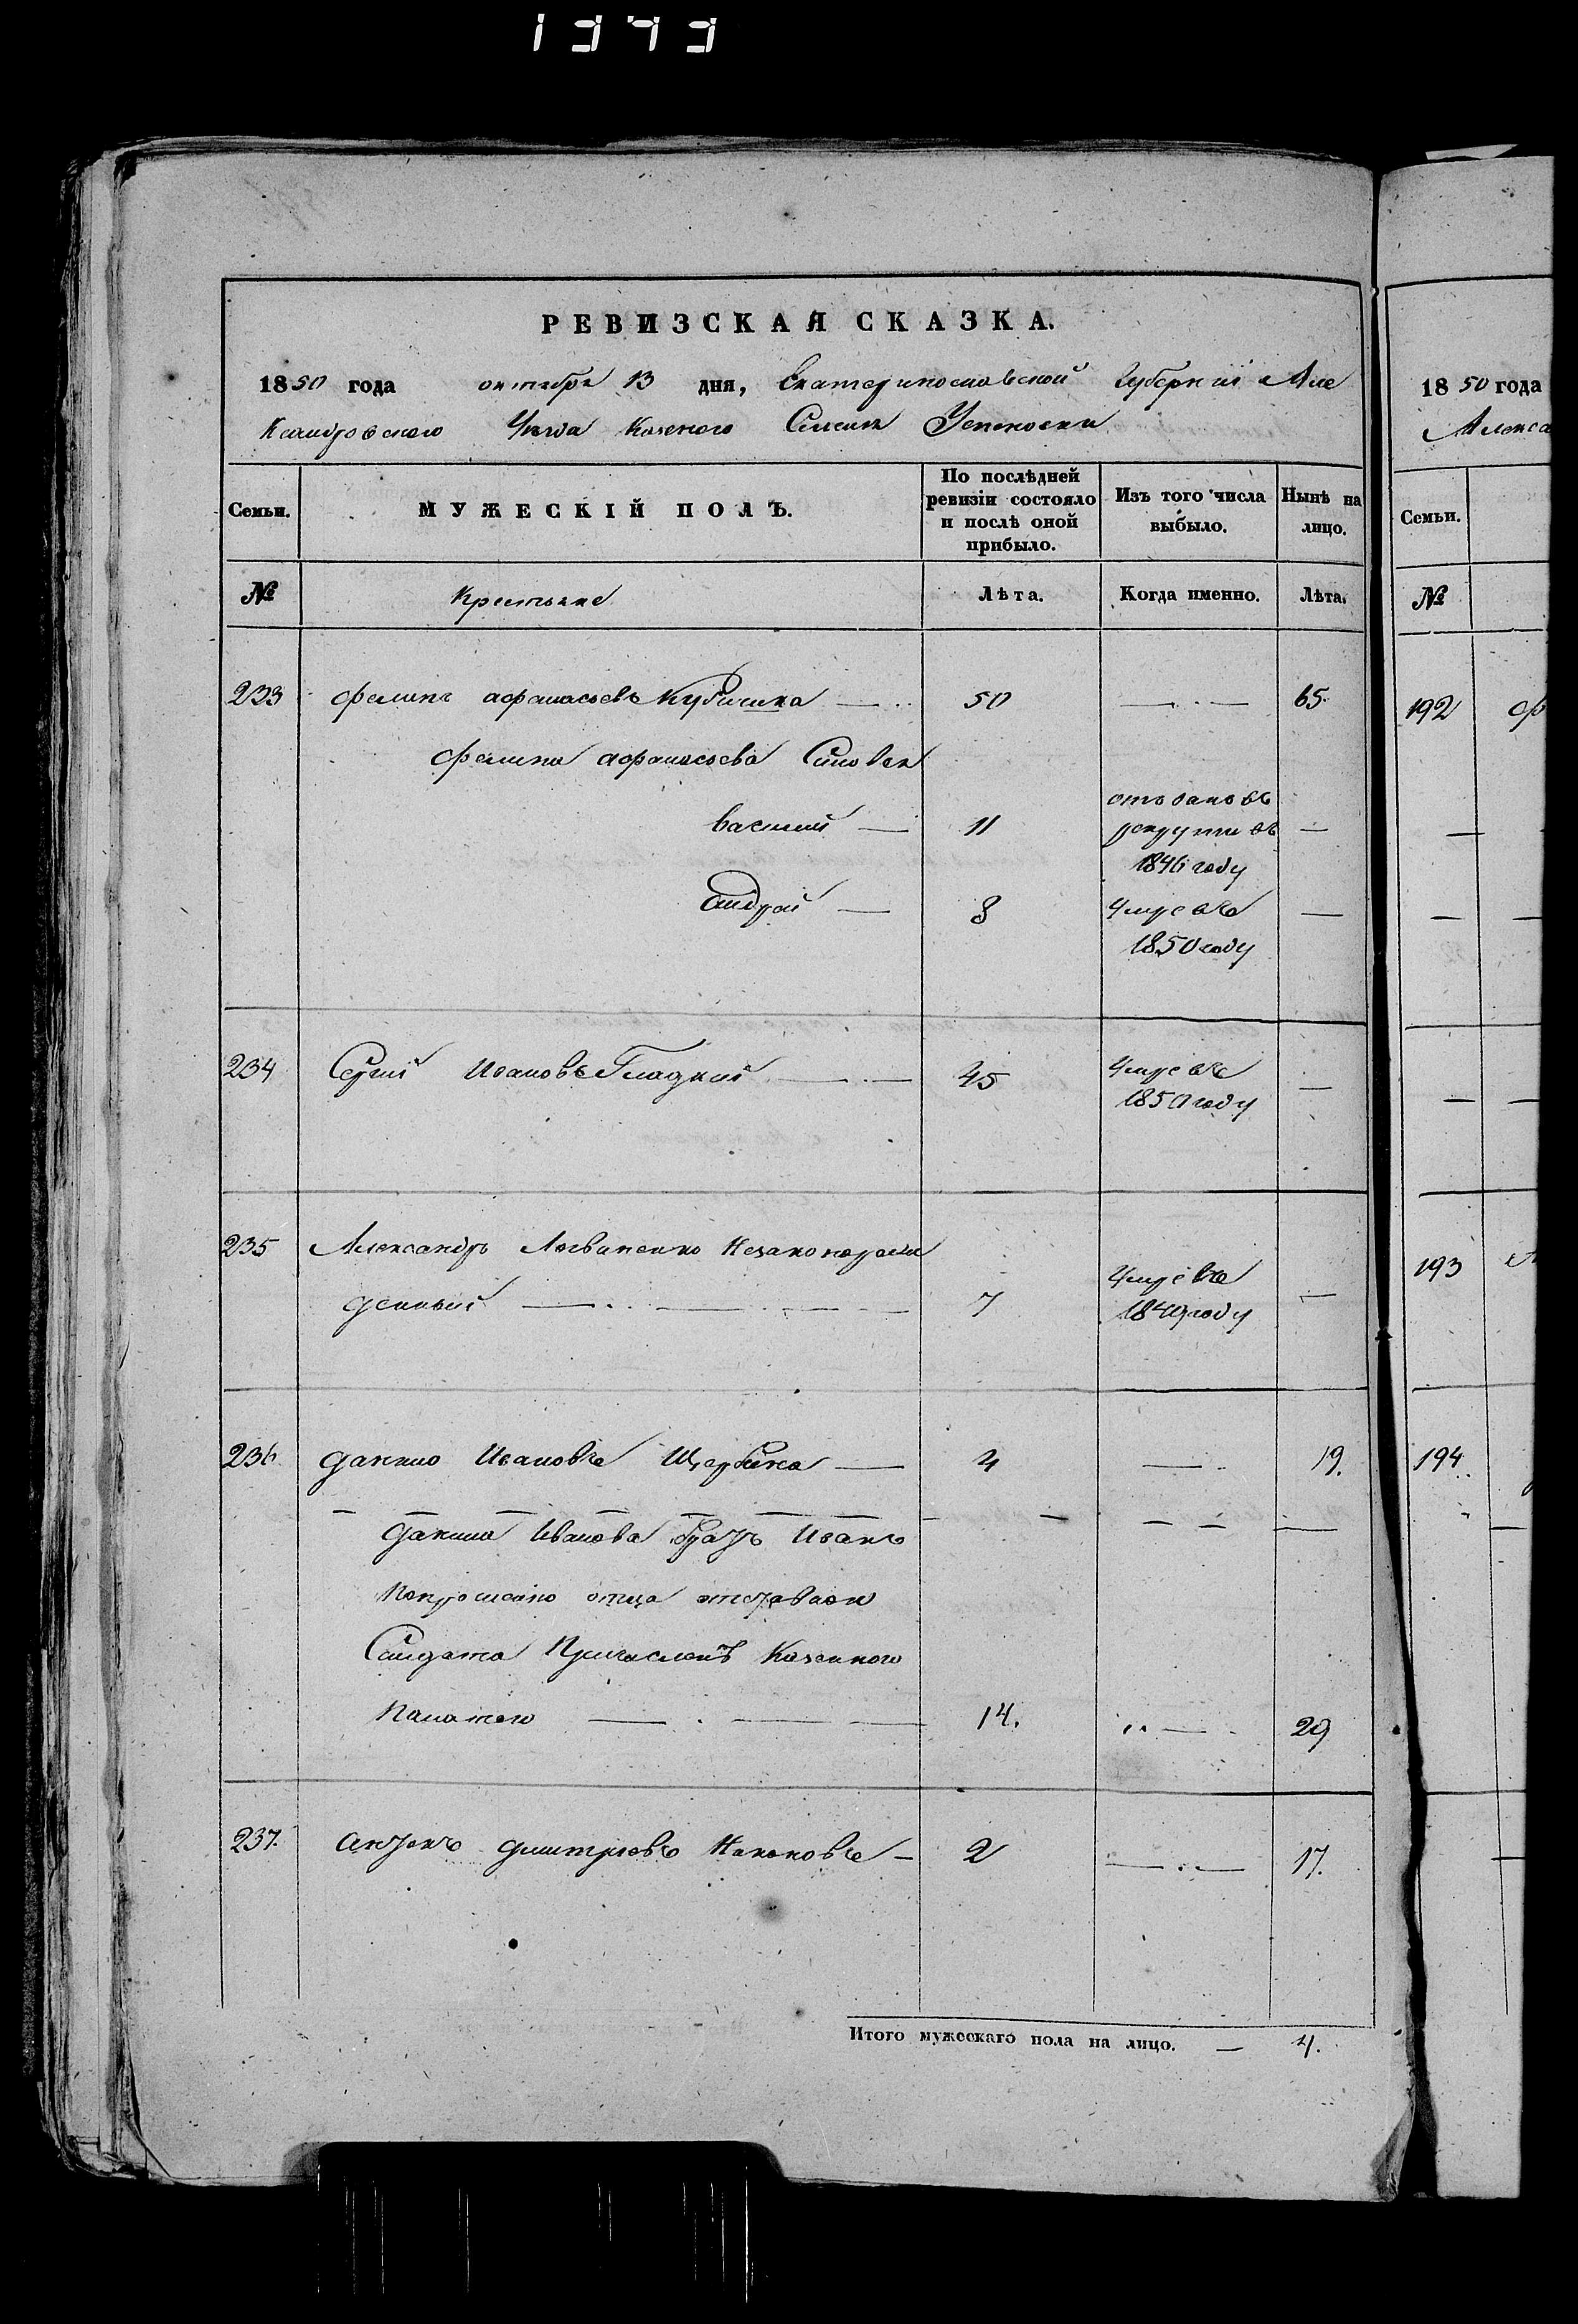 1373
РЕВИЗСКАЯ СКАЗКА.
1850 года октября 13 дня, Екатеринославской Губернии Але
ксандровского Уезда Казеного Селения Успеновки
Семьи.
МУЖЕСКІЙ ПОЛЪ.
По послѣдней ревизіи состояло и послѣ оной прибыло.
Изъ того числа выбыло.
Нынѣ на лицо.
№ Крестьяне Лѣта. Когда именно. Лѣта.
233 Филипъ афанасьевъ 50 65.
Филипа афанасьева Сыновья
василий 11 отъданъ въ рекруты въ 1846 году
андрей 8 Умре въ 1850 году
234 Сергий Ивановъ Гладкий 45 Умре въ 1850 году
235 Александръ Логвиненко Незаконорож
денный 7 Умре въ 1849 году
236 данило Ивановъ Щербина 4 19.
данила Иванова братъ Иванъ
попрошению отца отставнои
Салдата Причисленъ Казенною
Палатою 14. 29
237. антонъ дмитриевъ 2 17.
Итого мужескаго пола на лицо. 4.
1850 года
Алекса
Семьи.
№
192
193
194